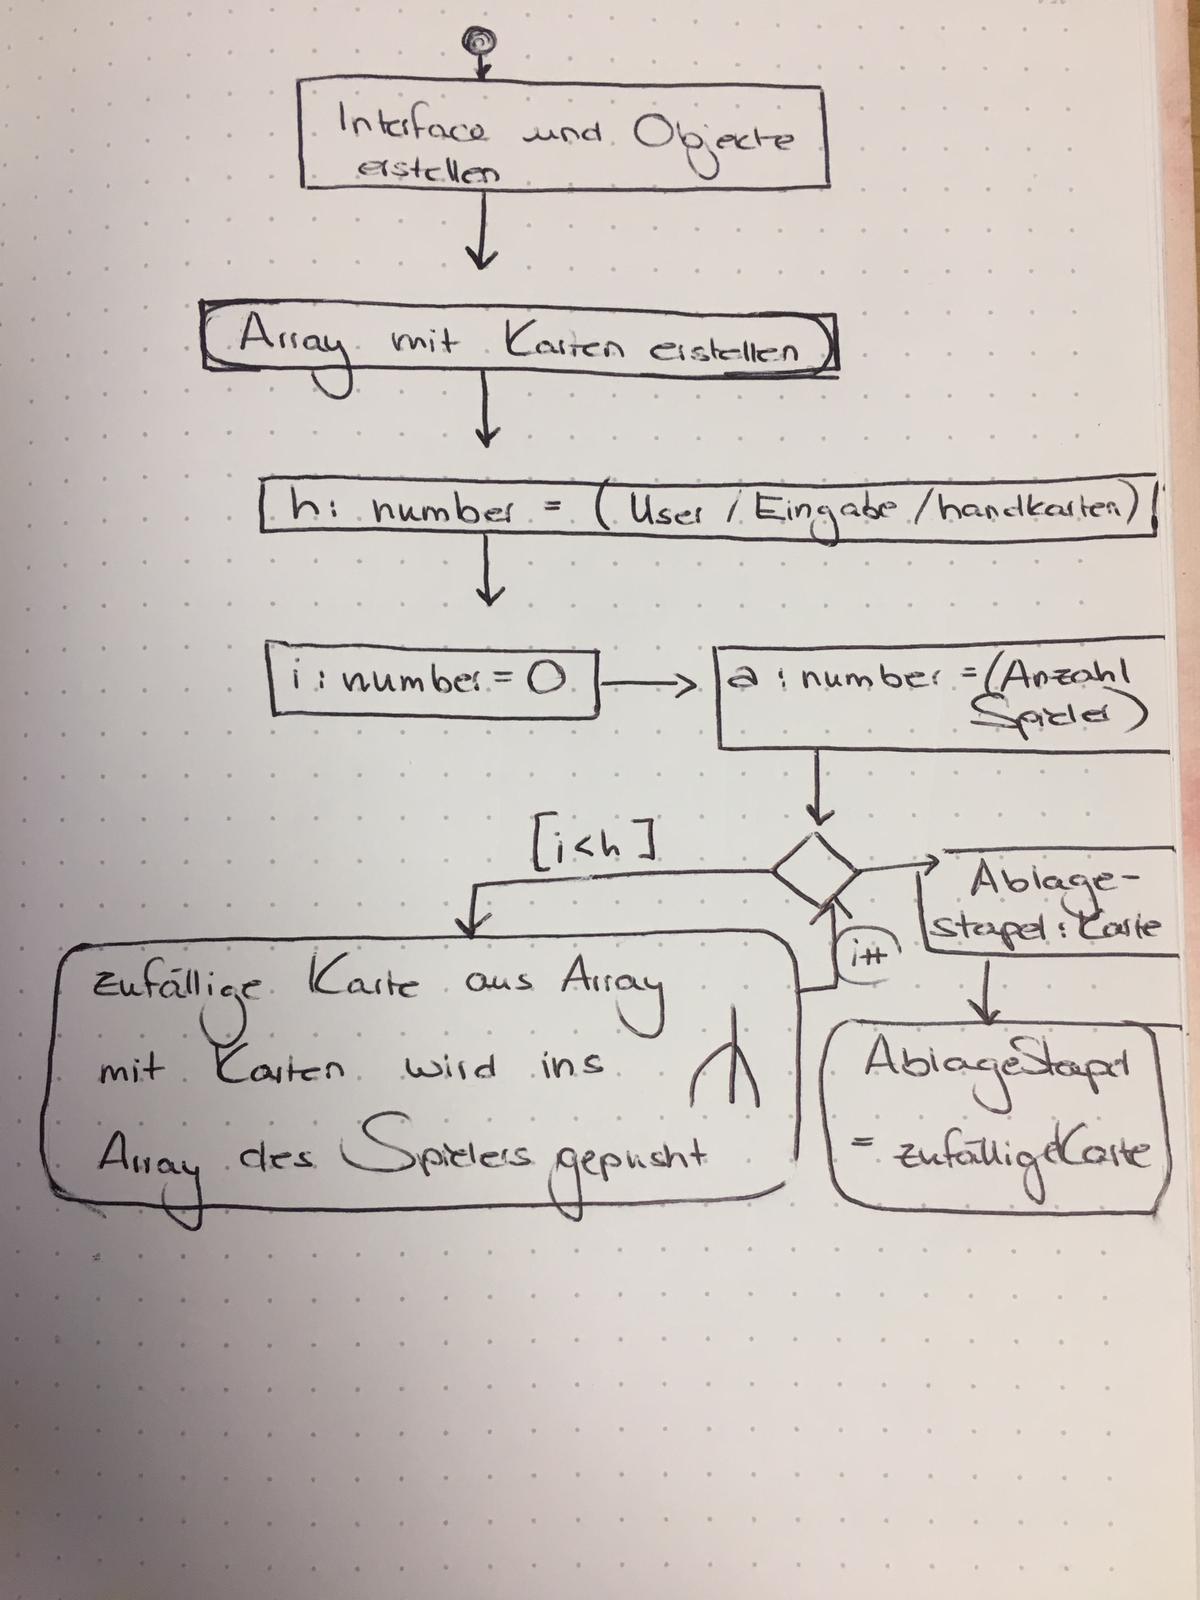 Interface und Objecte
erstellen
Array mit Karten erstellen
h: number = (User / Eingabe / handkarten)
i : number = 0
a : number = (Anzahl
Spieler)
[i<h]
Ablage-
stapel : Karte
i++
zufällige Karte aus Array
mit Karten wird ins
Array des Spielers gepusht
AblageStapel
= zufälligeKarte